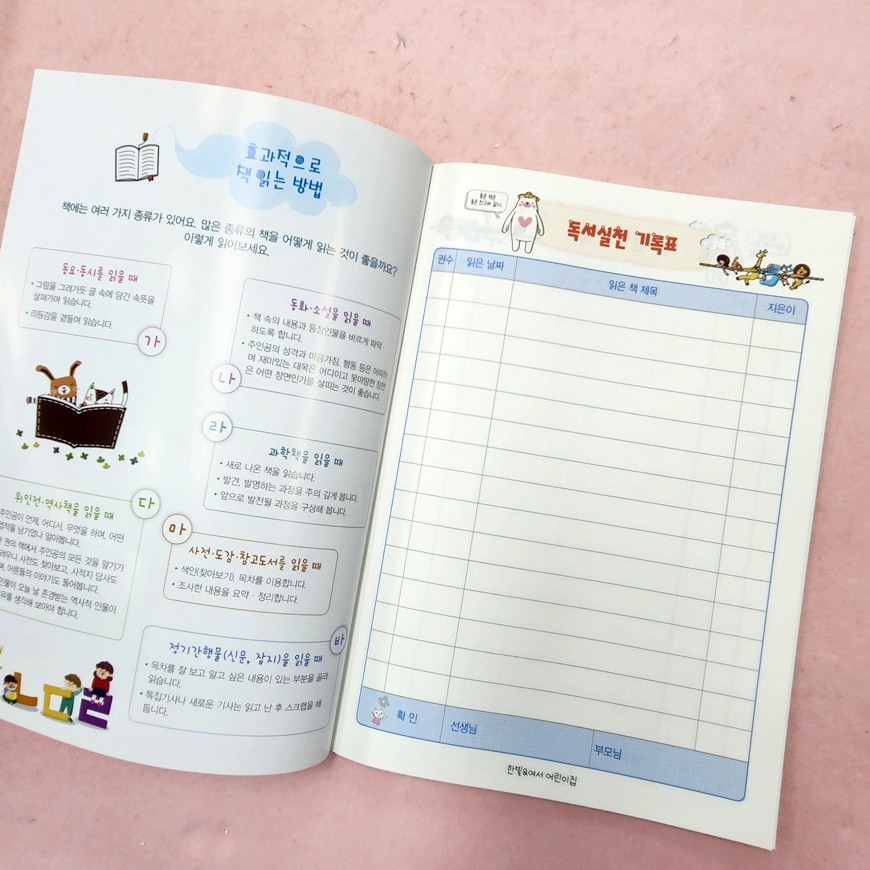 효과적으로
책 읽는 방법
책에는 여러 가지 종류가 있어요. 많은 종류의 책을 어떻게 읽는 것이 좋을까요?
이렇게 읽어보세요.
동요·동시를 읽을 때
• 그림을 그려가듯 글 속에 담긴 속뜻을
살펴가며 읽습니다.
• 리듬감을 곁들여 읽습니다.
가
동화·소설을 읽을 때
• 책 속의 내용과 등장인물을 바르게 파악
하도록 합니다.
• 주인공의 성격과 마음가짐, 행동 등은 어떠하
며 재미있는 대목은 어디이고 못마땅한 장면
은 어떤 장면인가를 살피는 것이 좋습니다.
나
라
과학책을 읽을 때
• 새로 나온 책을 읽습니다.
• 발견, 발명하는 과정을 주의 깊게 봅니다.
• 앞으로 발전될 과정을 구상해 봅니다.
다
위인전·역사책을 읽을 때
주인공이 언제, 어디서, 무엇을 하며, 어떤
업적을 남기었나 알아봅니다.
권의 책에서 주인공의 모든 것을 알기가
려우니 사전도 찾아보고, 사적지 답사도
며, 어른들의 이야기도 들어봅니다.
인물이 오늘 날 존경받는 역사적 인물이
유를 생각해 보아야 합니다.
마
사전·도감·참고도서를 읽을 때
• 색인(찾아보기), 목차를 이용합니다.
• 조사한 내용을 요약·정리합니다.
바
정기간행물(신문, 잡지)을 읽을 때
• 목차를 잘 보고 알고 싶은 내용이 있는 부분을 골라
읽습니다.
• 특집기사나 새로운 기사는 읽고 난 후 스크랩을 해
둡니다.
좋은 책은
좋은 친구와 같다.
독서실천 기록표
권수 읽은 날짜 읽은 책 제목 지은이
확 인 선생님 부모님
한빛&예서 어린이집